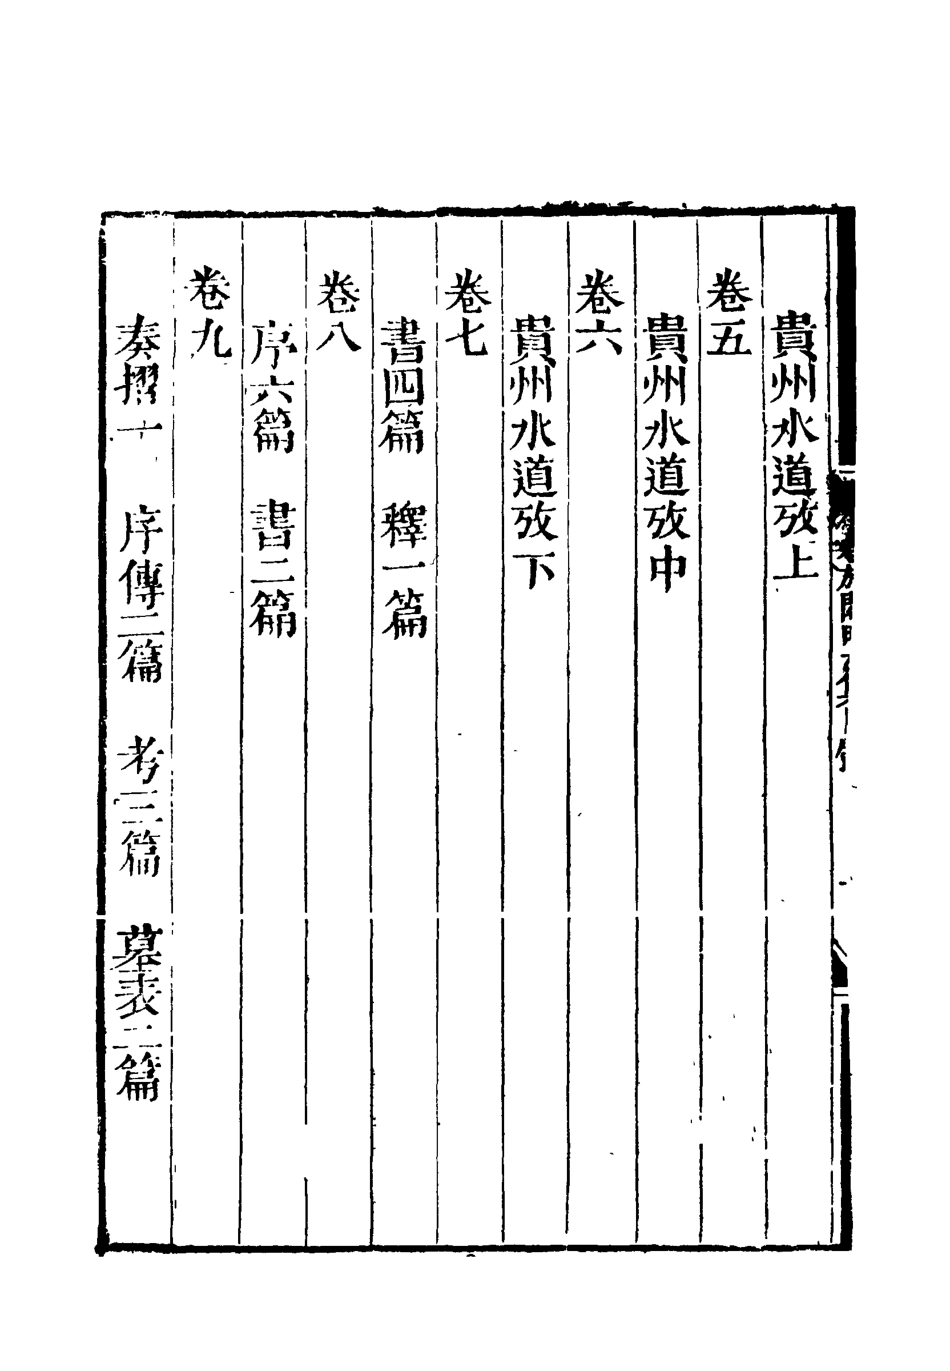 貴州水道攷上
卷五
貴州水道攷中
卷六
貴州水道攷下
卷七
書四篇　釋一篇
卷八
序六篇　書二篇
卷九
奏摺十　序傳二篇　考三篇　墓表二篇